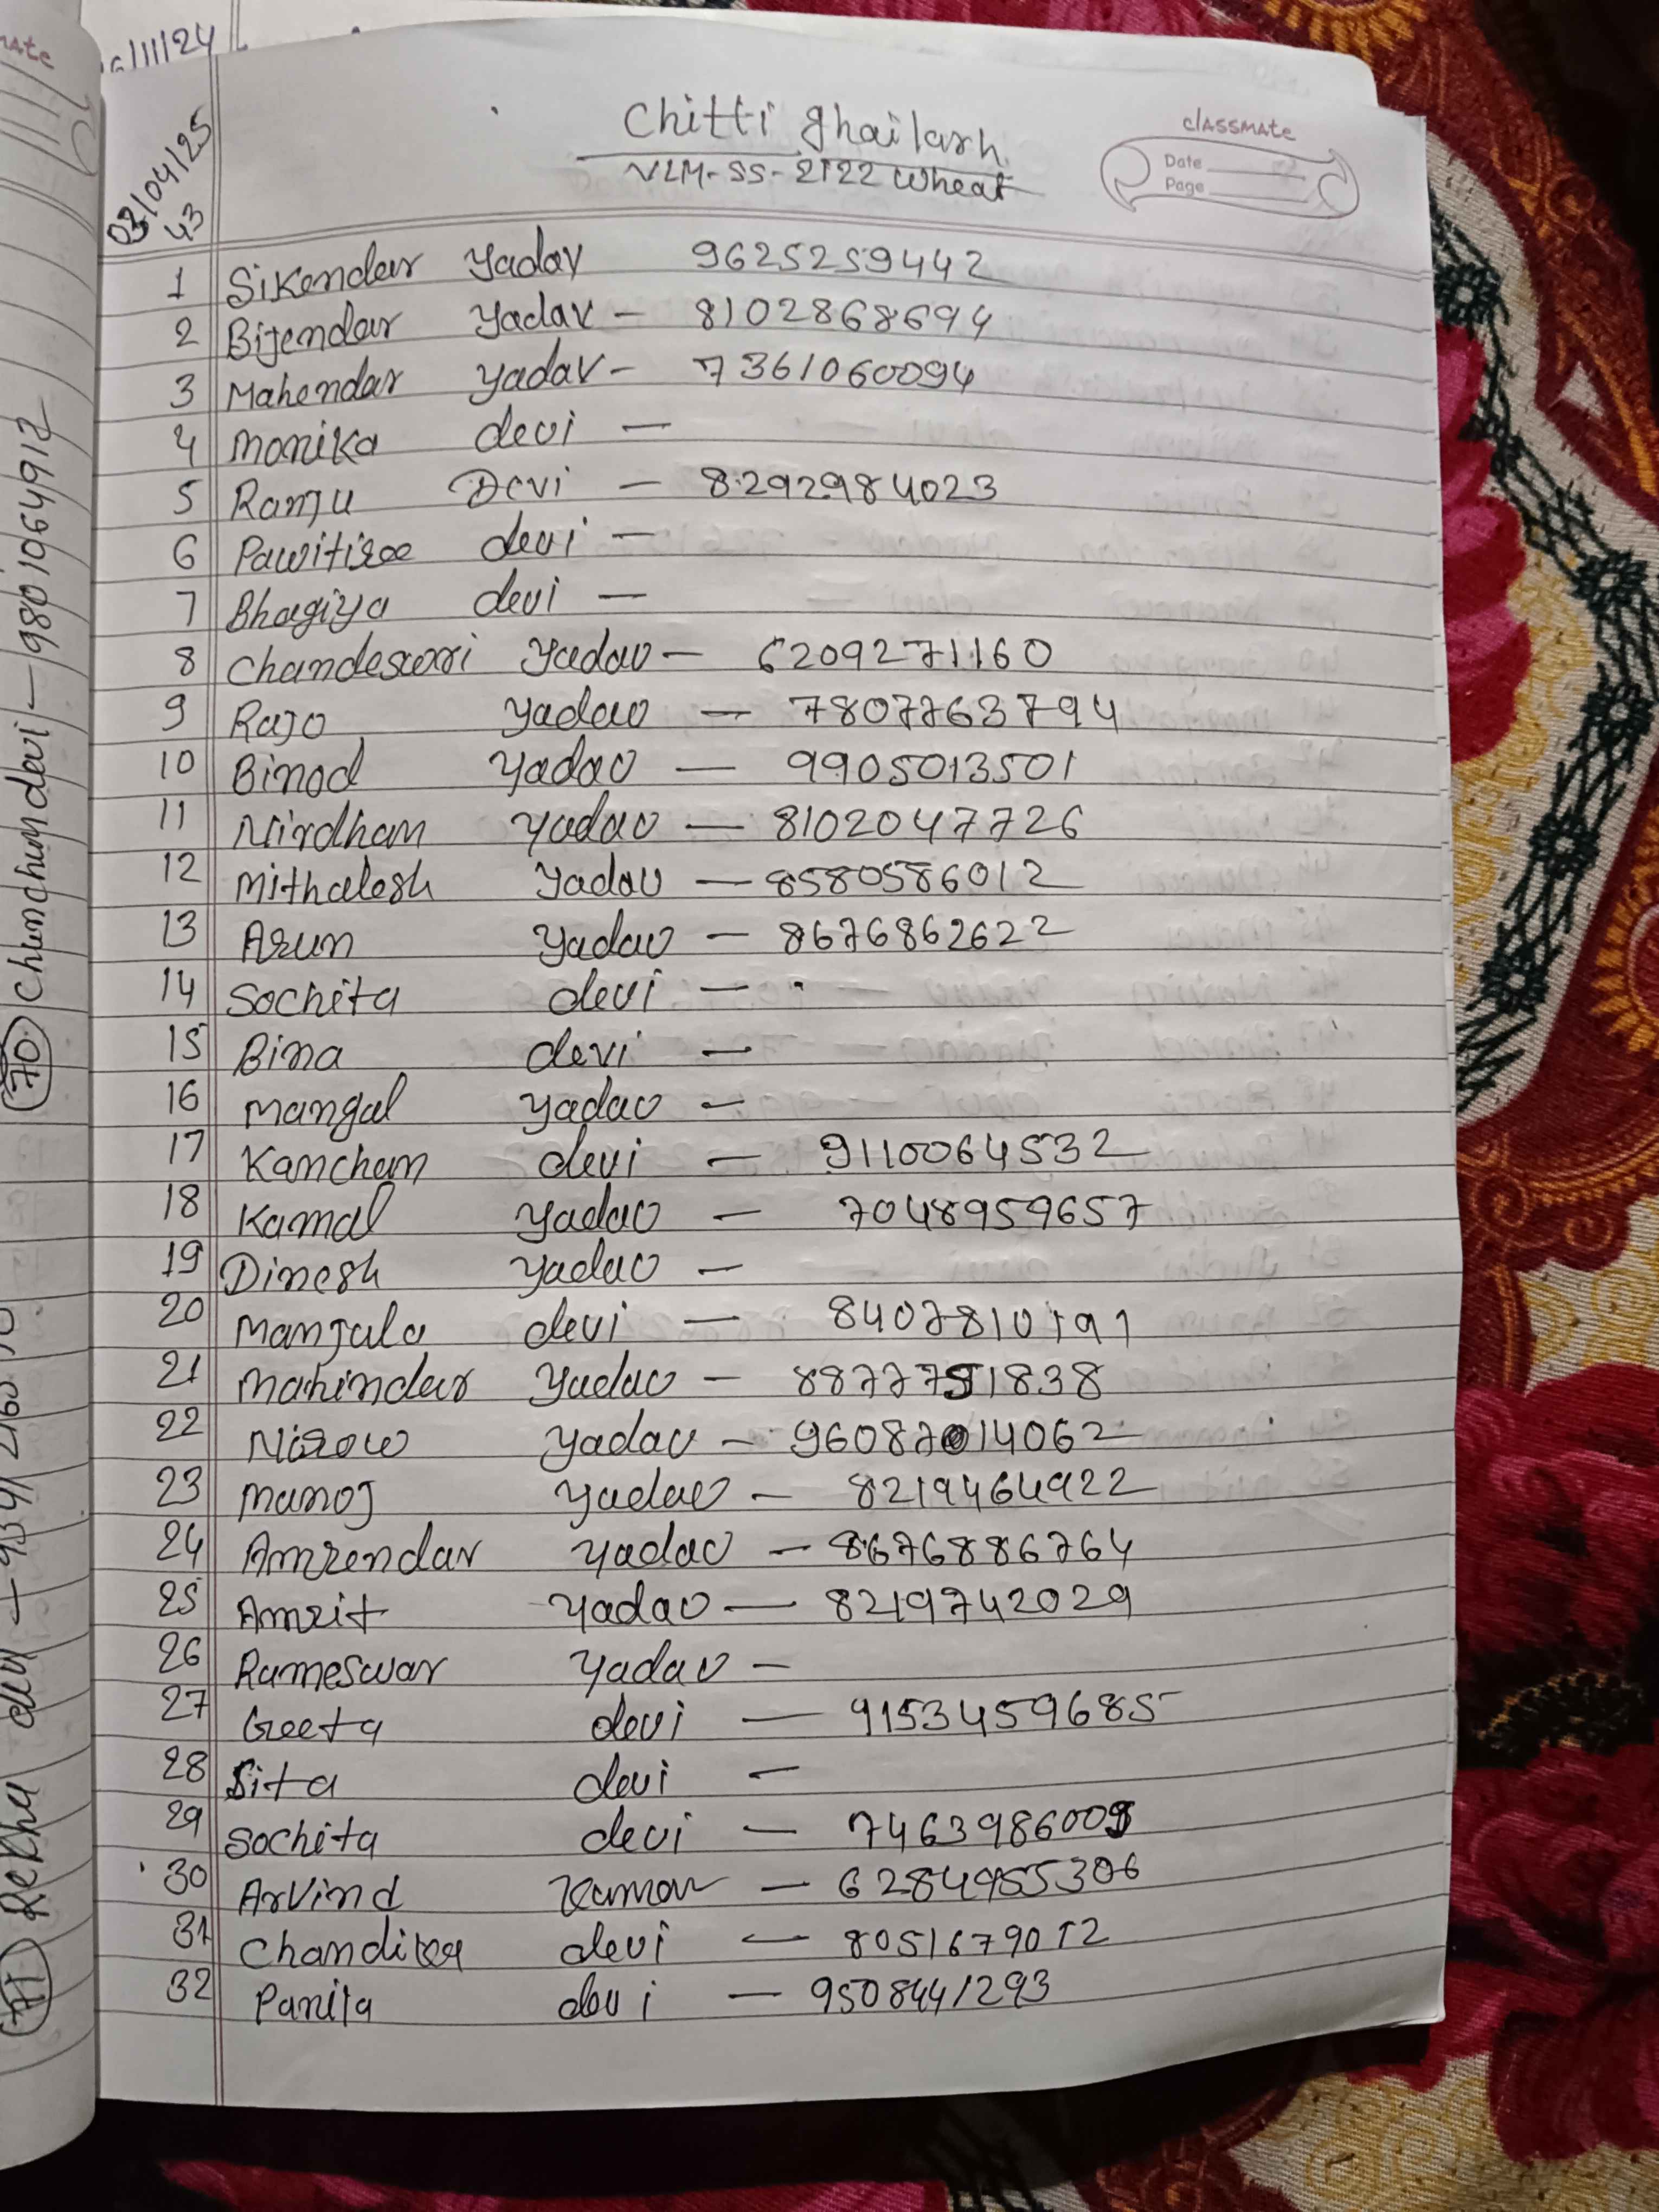 /11/24
03/04/25
43
Chitti ghailash
VLM-SS-2122 Wheat
classmate
Date
Page
1 Sikendar Yadav 9625259442
2 Bijendar Yadav - 8102868694
3 Mahendar Yadav - 7361060094
4 Monika devi -
5 Ranju Devi - 8292984023
6 Pawitree devi -
7 Bhagiya devi -
8 Chandeswari Yadav - 6209271160
9 Rajo Yadav - 7807763794
10 Binod Yadav - 9905013501
11 Nirdham Yadav - 8102047726
12 Mithalesh Yadav - 8580586012
13 Arun Yadav - 8676862622
14 Sochita devi -
15 Bina devi -
16 Mangal Yadav -
17 Kancham devi - 9110064532
18 Kamal Yadav - 7048959657
19 Dinesh Yadav -
20 Manjula devi - 8407810191
21 Mahindar Yadav - 8877751838
22 Nirow Yadav - 96087014062
23 Manoj Yadav - 8219464922
24 Amrendar Yadav - 8676886764
25 Amrit Yadav - 8219742029
26 Rameswar Yadav -
27 Geeta devi - 9153459685
28 Sita devi -
29 Sochita devi -
30 Arvind Kumar - 6284955306
31 Chandika devi - 8051679012
32 Panita devi - 9508441293
70 Chunchun devi - 9801064912
71 Rekha devi